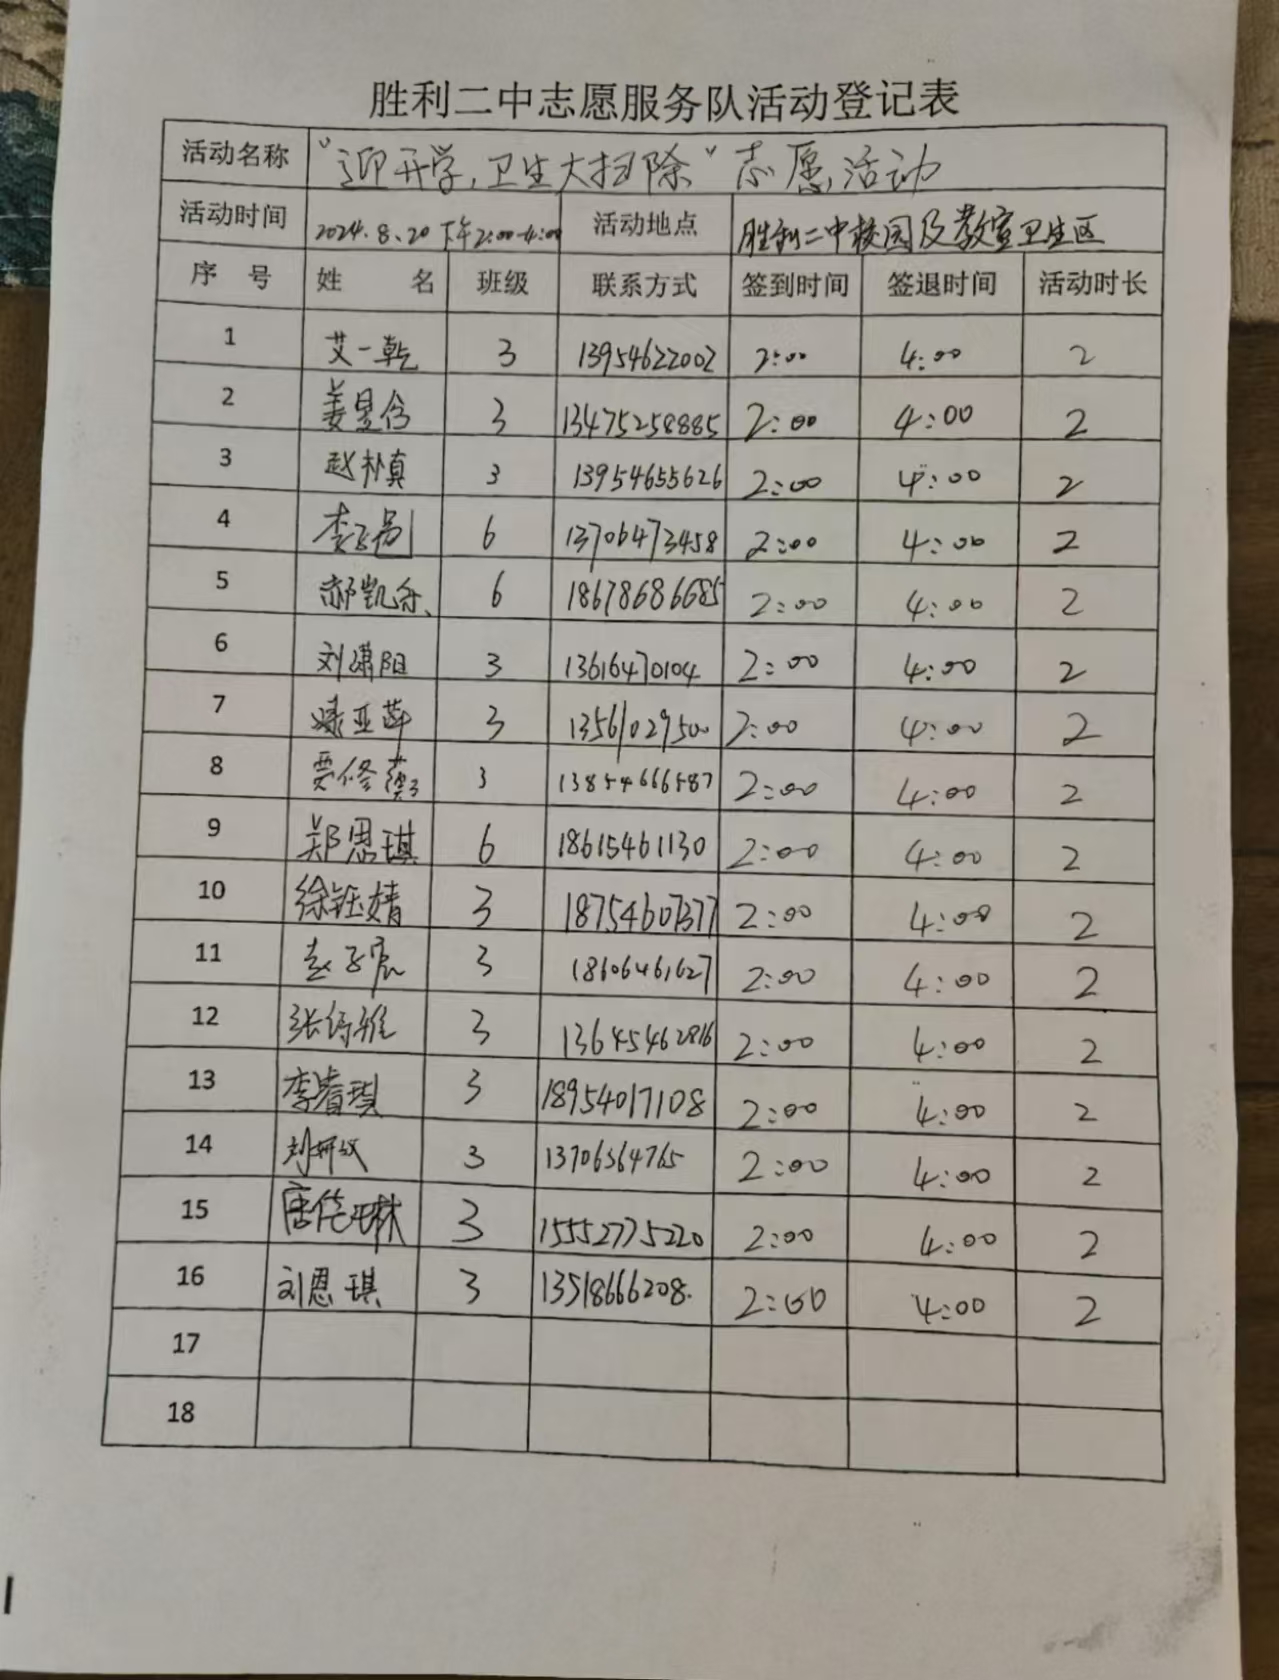 胜利二中志愿服务队活动登记表
活动名称 "迎开学,卫生大扫除"志愿活动
活动时间 2024.8.20 下午2:00-4:00 活动地点 胜利二中校园及教室卫生区
序 号 姓 名 班级 联系方式 签到时间 签退时间 活动时长
1 艾一乾 3 13954622002 2:00 4:00 2
2 姜昱含 3 13475258885 2:00 4:00 2
3 赵朴真 3 13954655626 2:00 4:00 2
4 李 6 13706473458 2:00 4:00 2
5 郝凯乐 6 18678686685 2:00 4:00 2
6 刘潇阳 3 13616470104 2:00 4:00 2
7 3 13561029500 2:00 4:00 2
8 贾修 3 13854666587 2:00 4:00 2
9 郑恩琪 6 18615461130 2:00 4:00 2
10 徐钰婧 3 18754607377 2:00 4:00 2
11 赵子宸 3 18606461627 2:00 4:00 2
12 张 3 13645462816 2:00 4:00 2
13 李睿琪 3 18954017108 2:00 4:00 2
14 刘妍仪 3 13706364765 2:00 4:00 2
15 唐 3 15552775220 2:00 4:00 2
16 刘恩琪 3 13518666208. 2:00 4:00 2
17
18